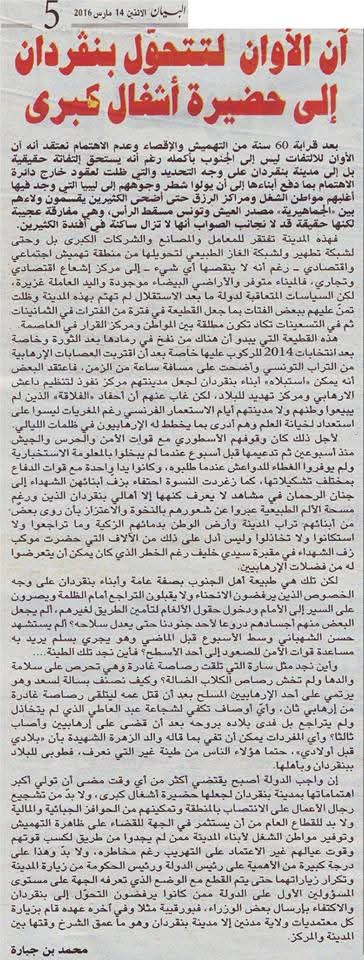 البيان الاثنين 14 مارس 2016
5
آن الأوان لتتحوّل بنڨردان
إلى حضيرة أشغال كبرى
بعد قرابة 60 سنة من التهميش والإقصاء وعدم الاهتمام نعتقد أنه آن
الأوان للالتفات ليس إلى الجنوب بأكمله رغم أنه يستحق إلتفاتة حقيقية
بل إلى مدينة بنڨردان على وجه التحديد والتي ظلت لعقود خارج دائرة
الاهتمام بما دفع أبناءها إلى أن يولوا شطر وجوههم إلى ليبيا التي وجد فيها
أغلبهم مواطن الشغل ومراكز الرزق حتى أضحى الكثيرين يقسمون ولاءهم
بين «الجماهيرية» مصدر العيش وتونس مسقط الرأس، وهي مفارقة عجيبة
لكنها حقيقة قد لا نجانب الصواب أنها لا تزال ساكنة في أفئدة الكثيرين.
فهذه المدينة تفتقر للمعامل والمصانع والشركات الكبرى بل وحتى
لشبكة تطهير ولشبكة الغاز الطبيعي لتحويلها من منطقة تهميش اجتماعي
واقتصادي ـ رغم أنه لا ينقصها أي شيء ـ إلى مركز إشعاع اقتصادي
وتجاري، فالميناء متوفر والأراضي البيضاء موجودة واليد العاملة غزيرة،
لكن السياسات المتعاقبة لدولة ما بعد الاستقلال لم تهتم بهذه المدينة وظلت
تمنّ عليهم ببعض الفتات بما جعل القطيعة في فترة من الفترات في الثمانينات
ثم في التسعينات تكاد تكون مطلقة بين المواطن ومركز القرار في العاصمة.
هذه القطيعة التي يبدو أن هناك من نفخ في رمادها بعد الثورة وخاصة
بعد انتخابات 2014 للركوب عليها خاصة بعد أن اقتربت العصابات الإرهابية
من التراب التونسي وأضحت على مسافة ساعة من الزمن، فاعتقد البعض
أنه يمكن «استبلاه» أبناء بنڨردان لجعل مدينتهم مركز نفوذ لتنظيم داعش
الإرهابي ومركز تهديد للبلاد، لكن غاب عنهم أن أحفاد «الفلاقة» الذين لم
يبيعوا وطنهم ولا مدينتهم أيام الاستعمار الفرنسي رغم المغريات ليسوا على
استعداد لخيانة العلم وهم أدرى بما يخطط له الإرهابيون في ظلمات الليالي.
لأجل ذلك كان وقوفهم الأسطوري مع قوات الأمن والحرس والجيش
منذ أسبوعين ثم تدعيمها قبل أسبوع عندما لم يبخلوا بالمعلومة الاستخبارية
ولم يوفروا الغطاء للدواعش عندما طلبوه، وكانوا يدا واحدة مع قوات الدفاع
بمختلف تشكيلاتها، كما زغردت النسوة احتفاء بزف أبنائهن الشهداء إلى
جنان الرحمان في مشاهد لا يعرف كنهها إلا أهالي بنڨردان الذين ورغم
مسحة الألم الطبيعية عبروا عن شعورهم بالنخوة والاعتزاز بأن روى بعض
من أبنائهم تراب المدينة وأرض الوطن بدمائهم الزكية وما تراجعوا ولا
استكانوا ولا تخاذلوا وليس أدل على ذلك من الآلاف التي حضرت موكب
زف الشهداء في مقبرة سيدي خليف رغم الخطر الذي كان يمكن أن يتعرضوا
له من فضلات الإرهابيين.
لكن تلك هي طبيعة أهل الجنوب بصفة عامة وأبناء بنڨردان على وجه
الخصوص الذين يرفضون الانحناء ولا يقبلون التراجع أمام الظلمة ويصرون
على السير إلى الأمام ودخول حقول الألغام لتأمين الطريق لغيرهم، ألم يجعل
البعض منهم أجسادهم دروعا لأحد جنودنا حتى يعدل سلاحه؟ ألم يستشهد
حسن الشهباني وسط الأسبوع قبل الماضي وهو يجري بسلم يريد به
مساعدة قوات الأمن للصعود إلى أحد الأسطح؟ فأين نجد تلك الطينة....
وأين نجد مثل سارة التي تلقت رصاصة غادرة وهي تحرص على سلامة
والدها ولم تخش رصاص الكلاب الضالة؟ وكيف نصنف بسالة لسعد وهو
يرتمي على أحد الإرهابيين المسلح بعد أن قتل عمه ليتلقى رصاصة غادرة
من إرهابي ثان، وأي أوصاف تكفي لشجاعة عبد العاطي الذي لم يتخاذل
ولم يتراجع بل فدى بلاده بروحه بعد أن قضى على إرهابيين وأصاب
ثالثا؟ وأي المفردات يمكن أن تفي بما قاله والد الزهرة الشهيدة بأن «بلادي
قبل أولادي»، حتما هؤلاء الناس من طينة غير التي نعرف، فطوبى للبلاد
ببنڨردان وبأهلها.
إن واجب الدولة أصبح يقتضي أكثر من أي وقت مضى أن تولي أكبر
اهتماماتها بمدينة بنڨردان لجعلها حضيرة أشغال كبرى، ولا بدّ من تشجيع
رجال الأعمال على الانتصاب بالمنطقة وتمكينهم من الحوافز الجبائية والمالية
ولا بد للقطاع العام من أن يستثمر في الجهة للقضاء على ظاهرة التهميش
وتوفير مواطن الشغل لأبناء المدينة ممن لم يجدوا من طريق لكسب قوتهم
وقوت عيالهم غير الاعتماد على التهريب رغم مخاطره، ولا بدّ وهذا على
درجة كبيرة من الأهمية على رئيس الدولة ورئيس الحكومة من زيارة المدينة
وتكرار زياراتهما حتى يتم القطع مع الوضع الذي تعرفه الجهة على مستوى
المسؤولين الأول على الدولة ممن كانوا يرفضون التحوّل إلى بنڨردان
والاكتفاء بإرسال بعض الوزراء، فبورقيبة مثلا وفي آخر عهده قام بزيارة
كل معتمديات ولاية مدنين إلا مدينة بنڨردان وهو ما عمق الشرخ وقتها بين
المدينة والمركز.
محمد بن جبارة